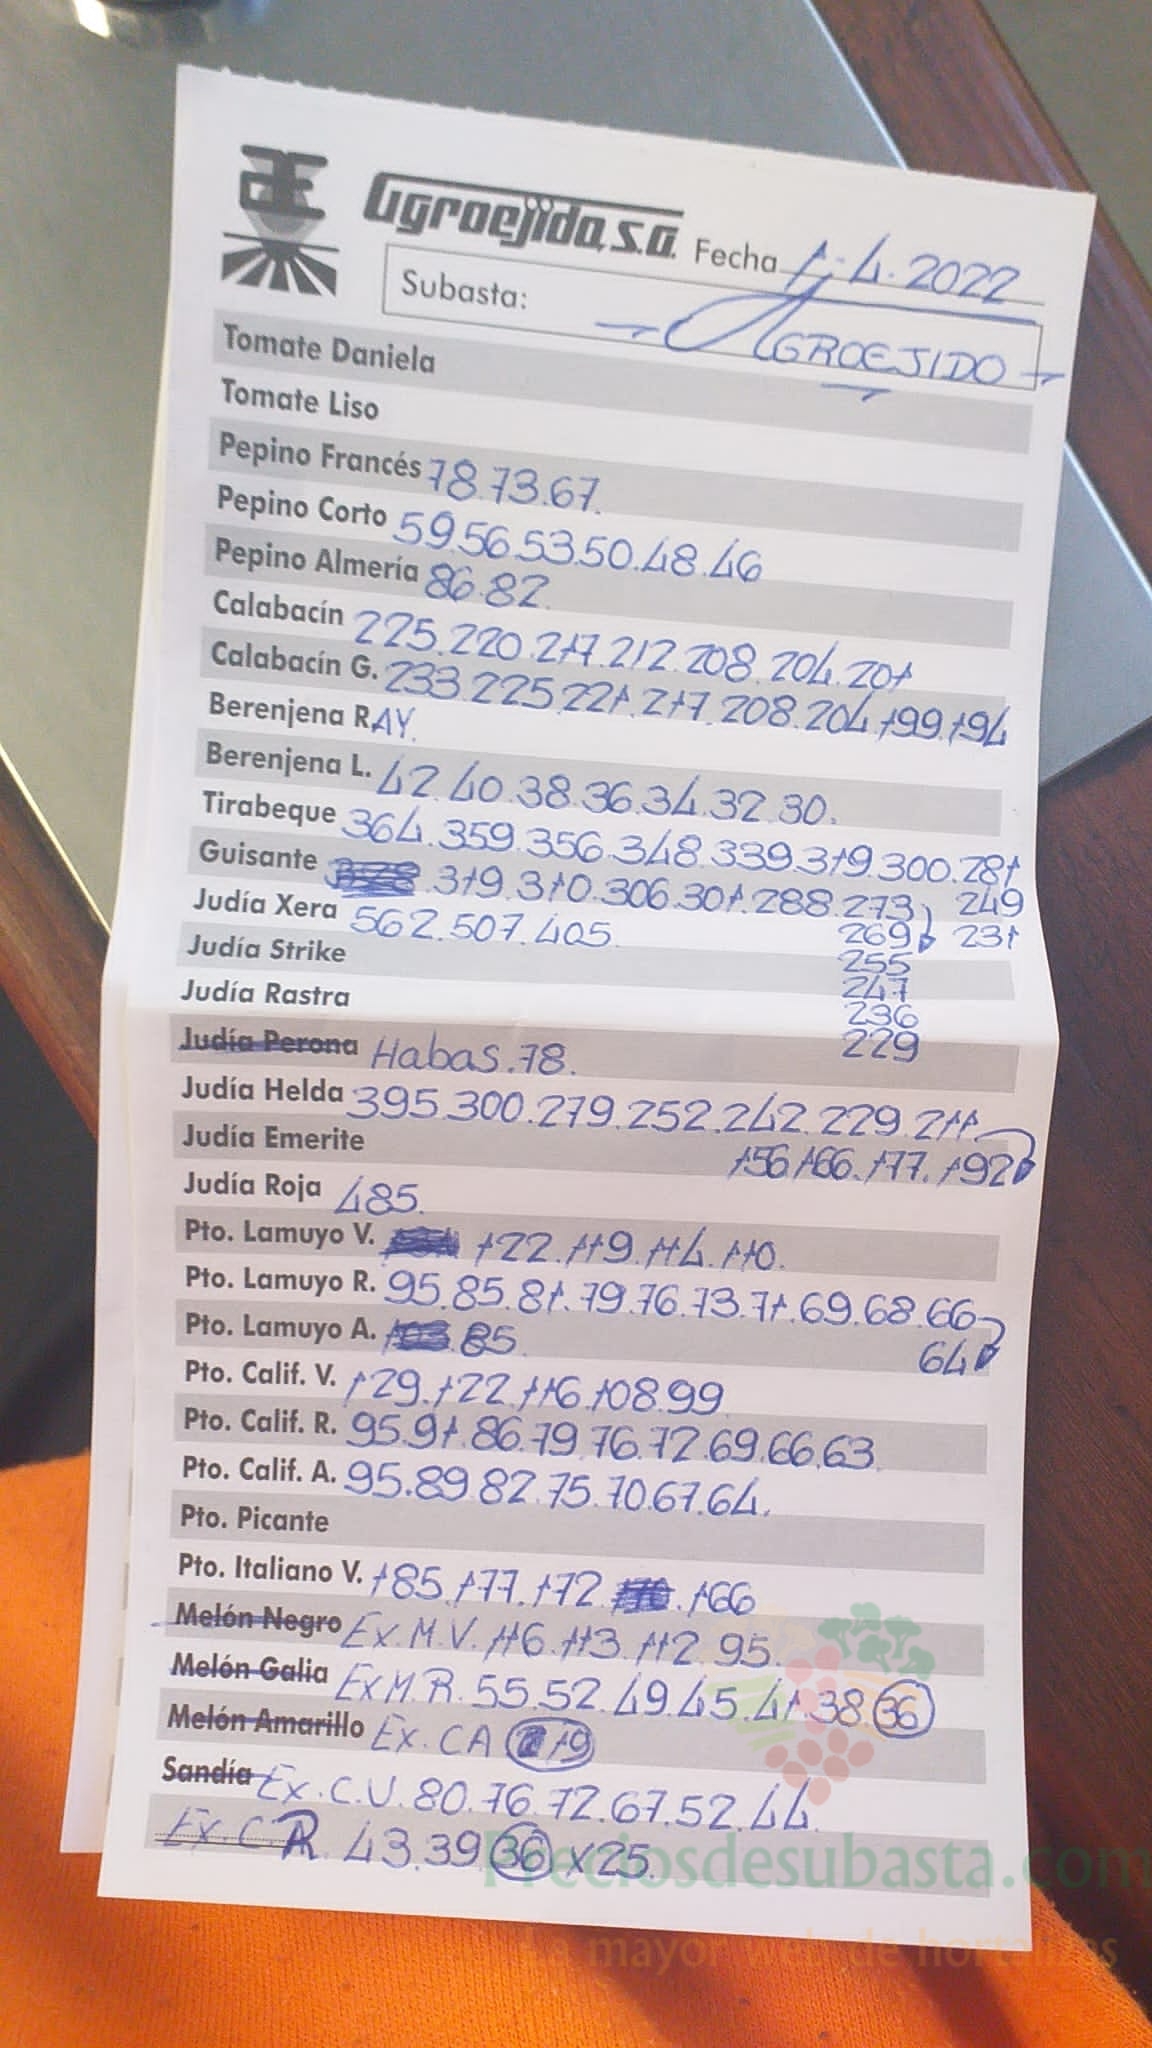 Agroejido, S.A. Fecha 1-4-2022
Subasta: AGROEJIDO
Tomate Daniela
Tomate Liso
Pepino Francés 78.73.67.
Pepino Corto 59.56.53.50.48.46
Pepino Almería 86.82.
Calabacín 225.220.217.212.208.204.201
Calabacín G. 233.225.221.217.208.204.199.194
Berenjena RAY.
Berenjena L. 42.40.38.36.34.32.30.
Tirabeque 364.359.356.348.339.319.300.281
249
231
Guisante 319.310.306.301.288.273
269
255
247
236
229
Judía Xera 562.507.405
Judía Strike
Judía Rastra
Judía Perona Habas.78.
Judía Helda 395.300.279.252.242.229.211
156.166.177.192
Judía Emerite
Judía Roja 485.
Pto. Lamuyo V. 122.119.114.110.
Pto. Lamuyo R. 95.85.81.79.76.73.71.69.68.66
64
Pto. Lamuyo A. 85
Pto. Calif. V. 129.122.116.108.99
Pto. Calif. R. 95.91.86.79.76.72.69.66.63
Pto. Calif. A. 95.89.82.75.70.67.64.
Pto. Picante
Pto. Italiano V. 185.177.172. 166
Melón Negro Ex.M.V. 116.113.112.95.
Melón Galia Ex M.R. 55.52.49.45.41.38 36
Melón Amarillo Ex.CA
Sandía Ex.C.V. 80.76.72.67.52.44
Ex.C.R. 43.39 36 x25.
Preciosdesubasta.com
La mayor web de hortalizas